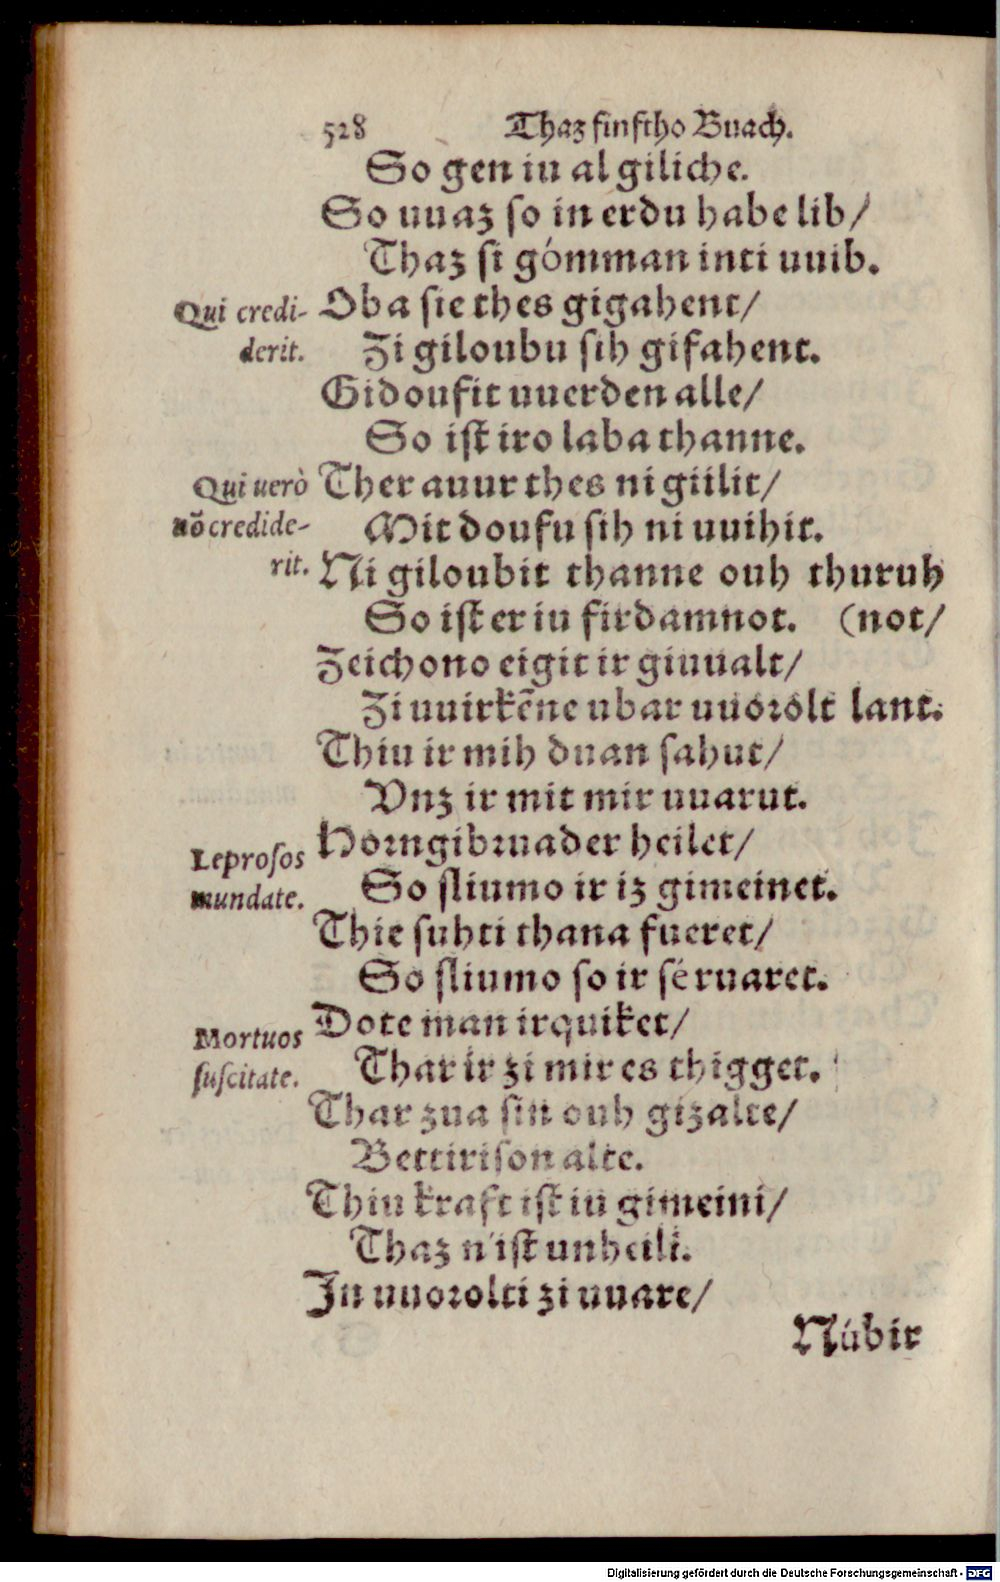 528 Thaz finftho Buach.
So gen iu al giliche.
So uuaz so in erdu habe lib/
Thaz si gómman inti uuib.
Qui credi-
Oba sie thes gigahent/
derit.
Zi giloubu sih gifahent.
Gidoufit uuerden alle/
So ist iro laba thanne.
Qui uerò
Ther auur thes ni giilit/
nō credide-
Mit doufu sih ni uuihit.
rit.
Ni giloubit thanne ouh thuruh
So ist er iu firdamnot. (not/
Zeichono eigit ir giuualt/
Zi uuirkēne ubar uuorolt lant.
Thiu ir mih duan sahut/
Vnz ir mit mir uuarut.
Leprosos
Horngibruader heilet/
mundate.
So sliumo ir iz gimeinet.
Thie suhti thana fueret/
So sliumo so ir sé ruaret.
Mortuos
Dote man irquiket/
suscitate.
Thar ir zi mir es thigget.
Thar zua sin ouh gizalte/
Bettirison alte.
Thiu kraft ist iu gimeini/
Thaz n'ist unheili.
In uuorolti zi uuare/
Nubir
Digitalisierung gefördert durch die Deutsche Forschungsgemeinschaft - DFG